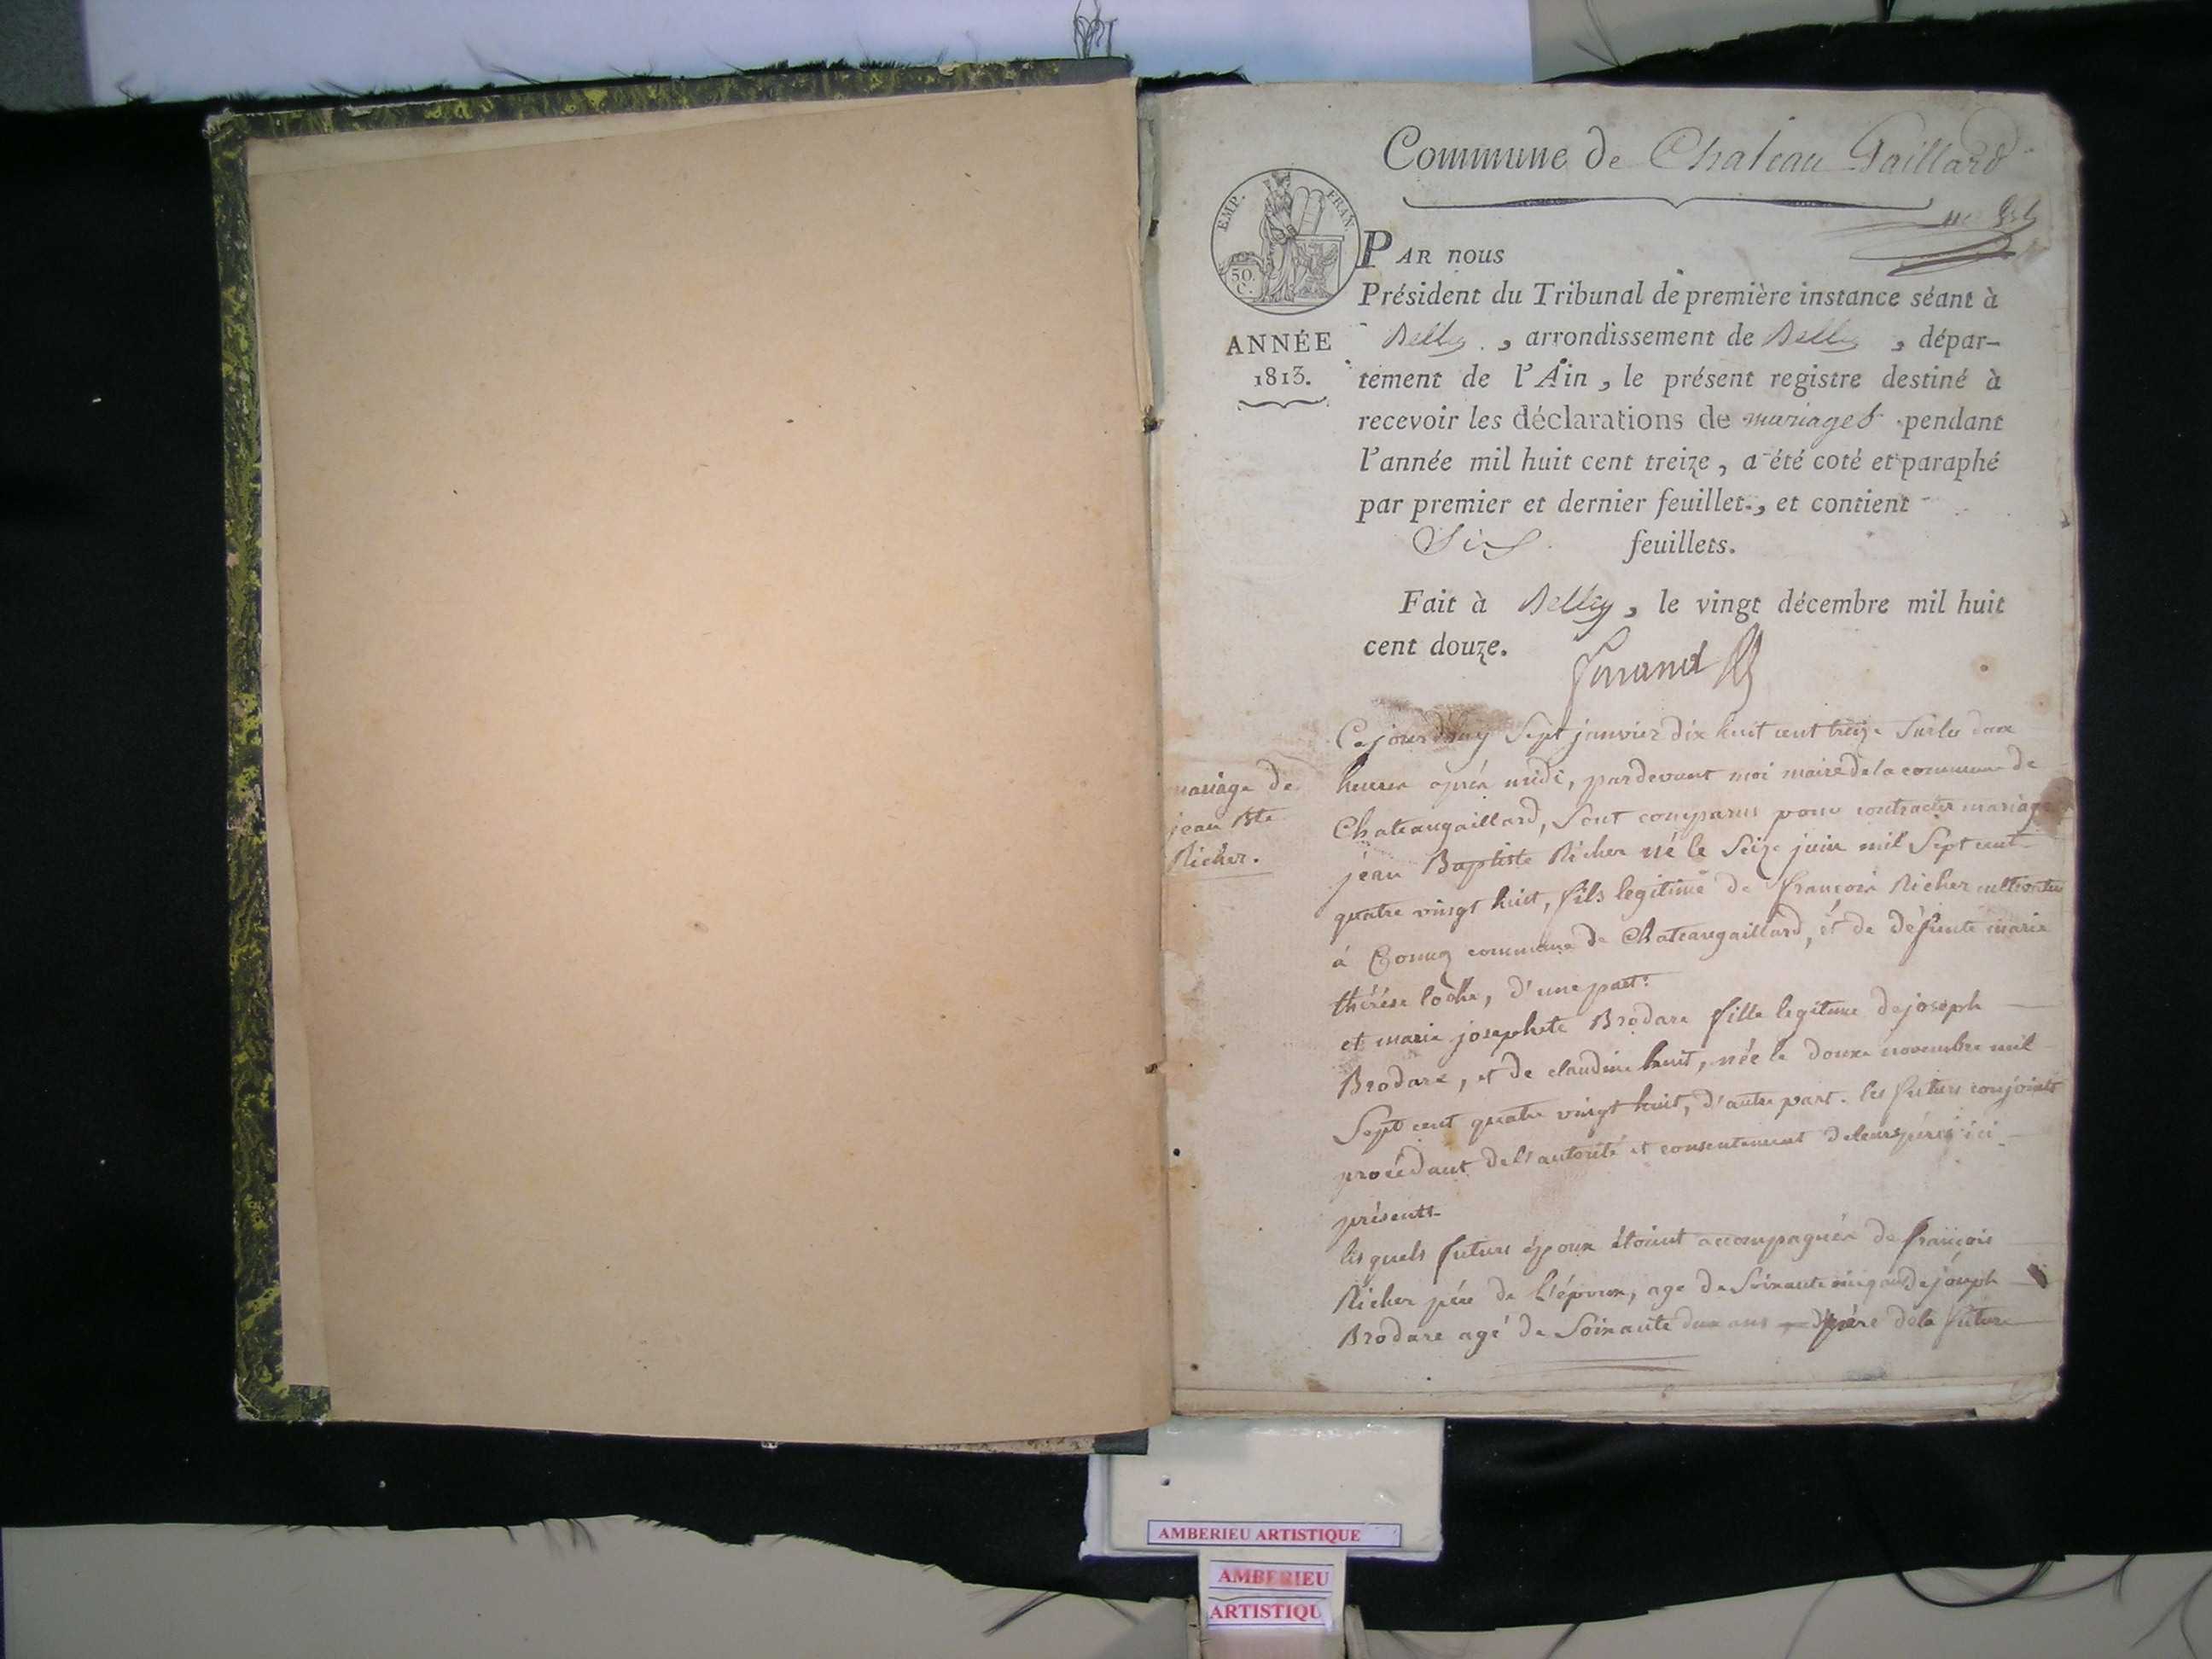 Commune de Chateau Gaillard
EMP. FRAN.
50.
C.
PAR nous
Président du Tribunal de première instance séant à
Belley, arrondissement de Belley, dépar-
tement de l'Ain, le présent registre destiné à
recevoir les déclarations de mariages pendant
l'année mil huit cent treize, a été coté et paraphé
par premier et dernier feuillet, et contient
Six feuillets.
Fait à Belley, le vingt décembre mil huit
cent douze.
ANNÉE
1813.
mariage de
jean Bte
Richer.
Cejourdhuy Sept janvier dix huit cent treize Sur les deux
heures après midi, pardevant moi maire de la commune de
Chateaugaillard, Sont comparus pour contracter mariage
jean Baptiste Richer né le Seize juin mil Sept cent
quatre vingt huit, fils legitime de françois Richer cultivateur
à commune de Chateaugaillard, et de défunte marie
thérèse loche, d'une part:
et marie josephete Brodare fille legitime de joseph
Brodare, et de claudine huit, née le douze novembre mil
Sept cent quatre vingt huit, d'autre part. les futurs conjoints
procédant de l'autorité et consentement de leurs pères ici
présents
lesquels futurs époux étoient accompagnés de françois
Richer père de l'époux, age de Soixante ans de joseph
Brodare agé de Soixante deux ans père de la future
AMBERIEU ARTISTIQUE
AMBERIEU
ARTISTIQU